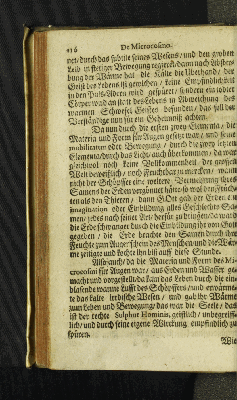 116 De Microcosmo.
net/ durch das subtile seines Wesens/ und den groben
Leib in stetiger Bewegung regieret: dann nach Abscheidung der
bung der Wärme hat die Kälte die Überhand/ der
Geist des Lebens ist gewichen/ keine Empfindlichkeit
in den Puls-Adern wird gespüret/ sondern ein todter
Cörper/ an statt des Lebens in Abweichung des
warmen Schöpfers Geistes befunden/ das soll der
Verständige nun für ein Geheimniß achten.
Da nun durch die ersten zwey Elementa/ die
Materia und Form für Augen gesetzt/ und seine
mobilitatem oder Bewegung/ durch die zwey letzten
Elementa/ durch das Licht auch herkommen/ da war
gleichwol noch keine Vollkommenheit der gantzen
Welt beweißlich/ noch Fruchtbar zu mercken/ wann
nicht der Schöpffer eine gewisse Vermehrung seines
Samens der Erden vergönnet hätte/ so wol den Früchten
als den Thieren/ dann GOtt gab der Erden die
imagination oder Einbildung alles Geschlechts Samen/
jedes nach seiner Art/ herfür zu bringen/ da ward
die Erde schwanger durch die Einbildung ihr von Gott
gegeben/ die Erde brachte den Samen durch ihre
Feuchte zum Augenschein des Menschen und die Wärme
zeitigte und kochte ihn biß auf diese Stunde.
Also auch/ da die Materia und Form des Microcosmi
für Augen war/ aus Erden und Wasser gemacht
und vorgestellt/ da kam das Leben durch die einblasende
warme Lufft des Schöpffers/ und erwärmete
das kalte irrdische Wesen/ und gab ihr Wärme
zum Leben und Bewegung/ das war die Seele/ das
ist der rechte Sulphur Hominis, greifflich/ unbegreifflich/
und durch seine eigene Würckung empfindlich zu
spüren.
Wie